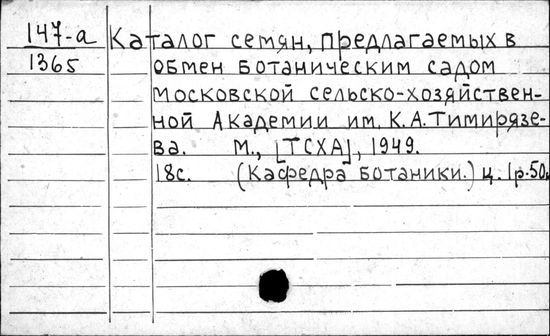 147-а Каталог семян, предлагаемых в
1365 обмен ботаническим садом
московской сельско-хозяйствен-
ной Академии им. К.А.Тимирязе-
ва. М., [ТСХА], 1949.
18с. (Кафедра ботаники.) ц. 1р.50к